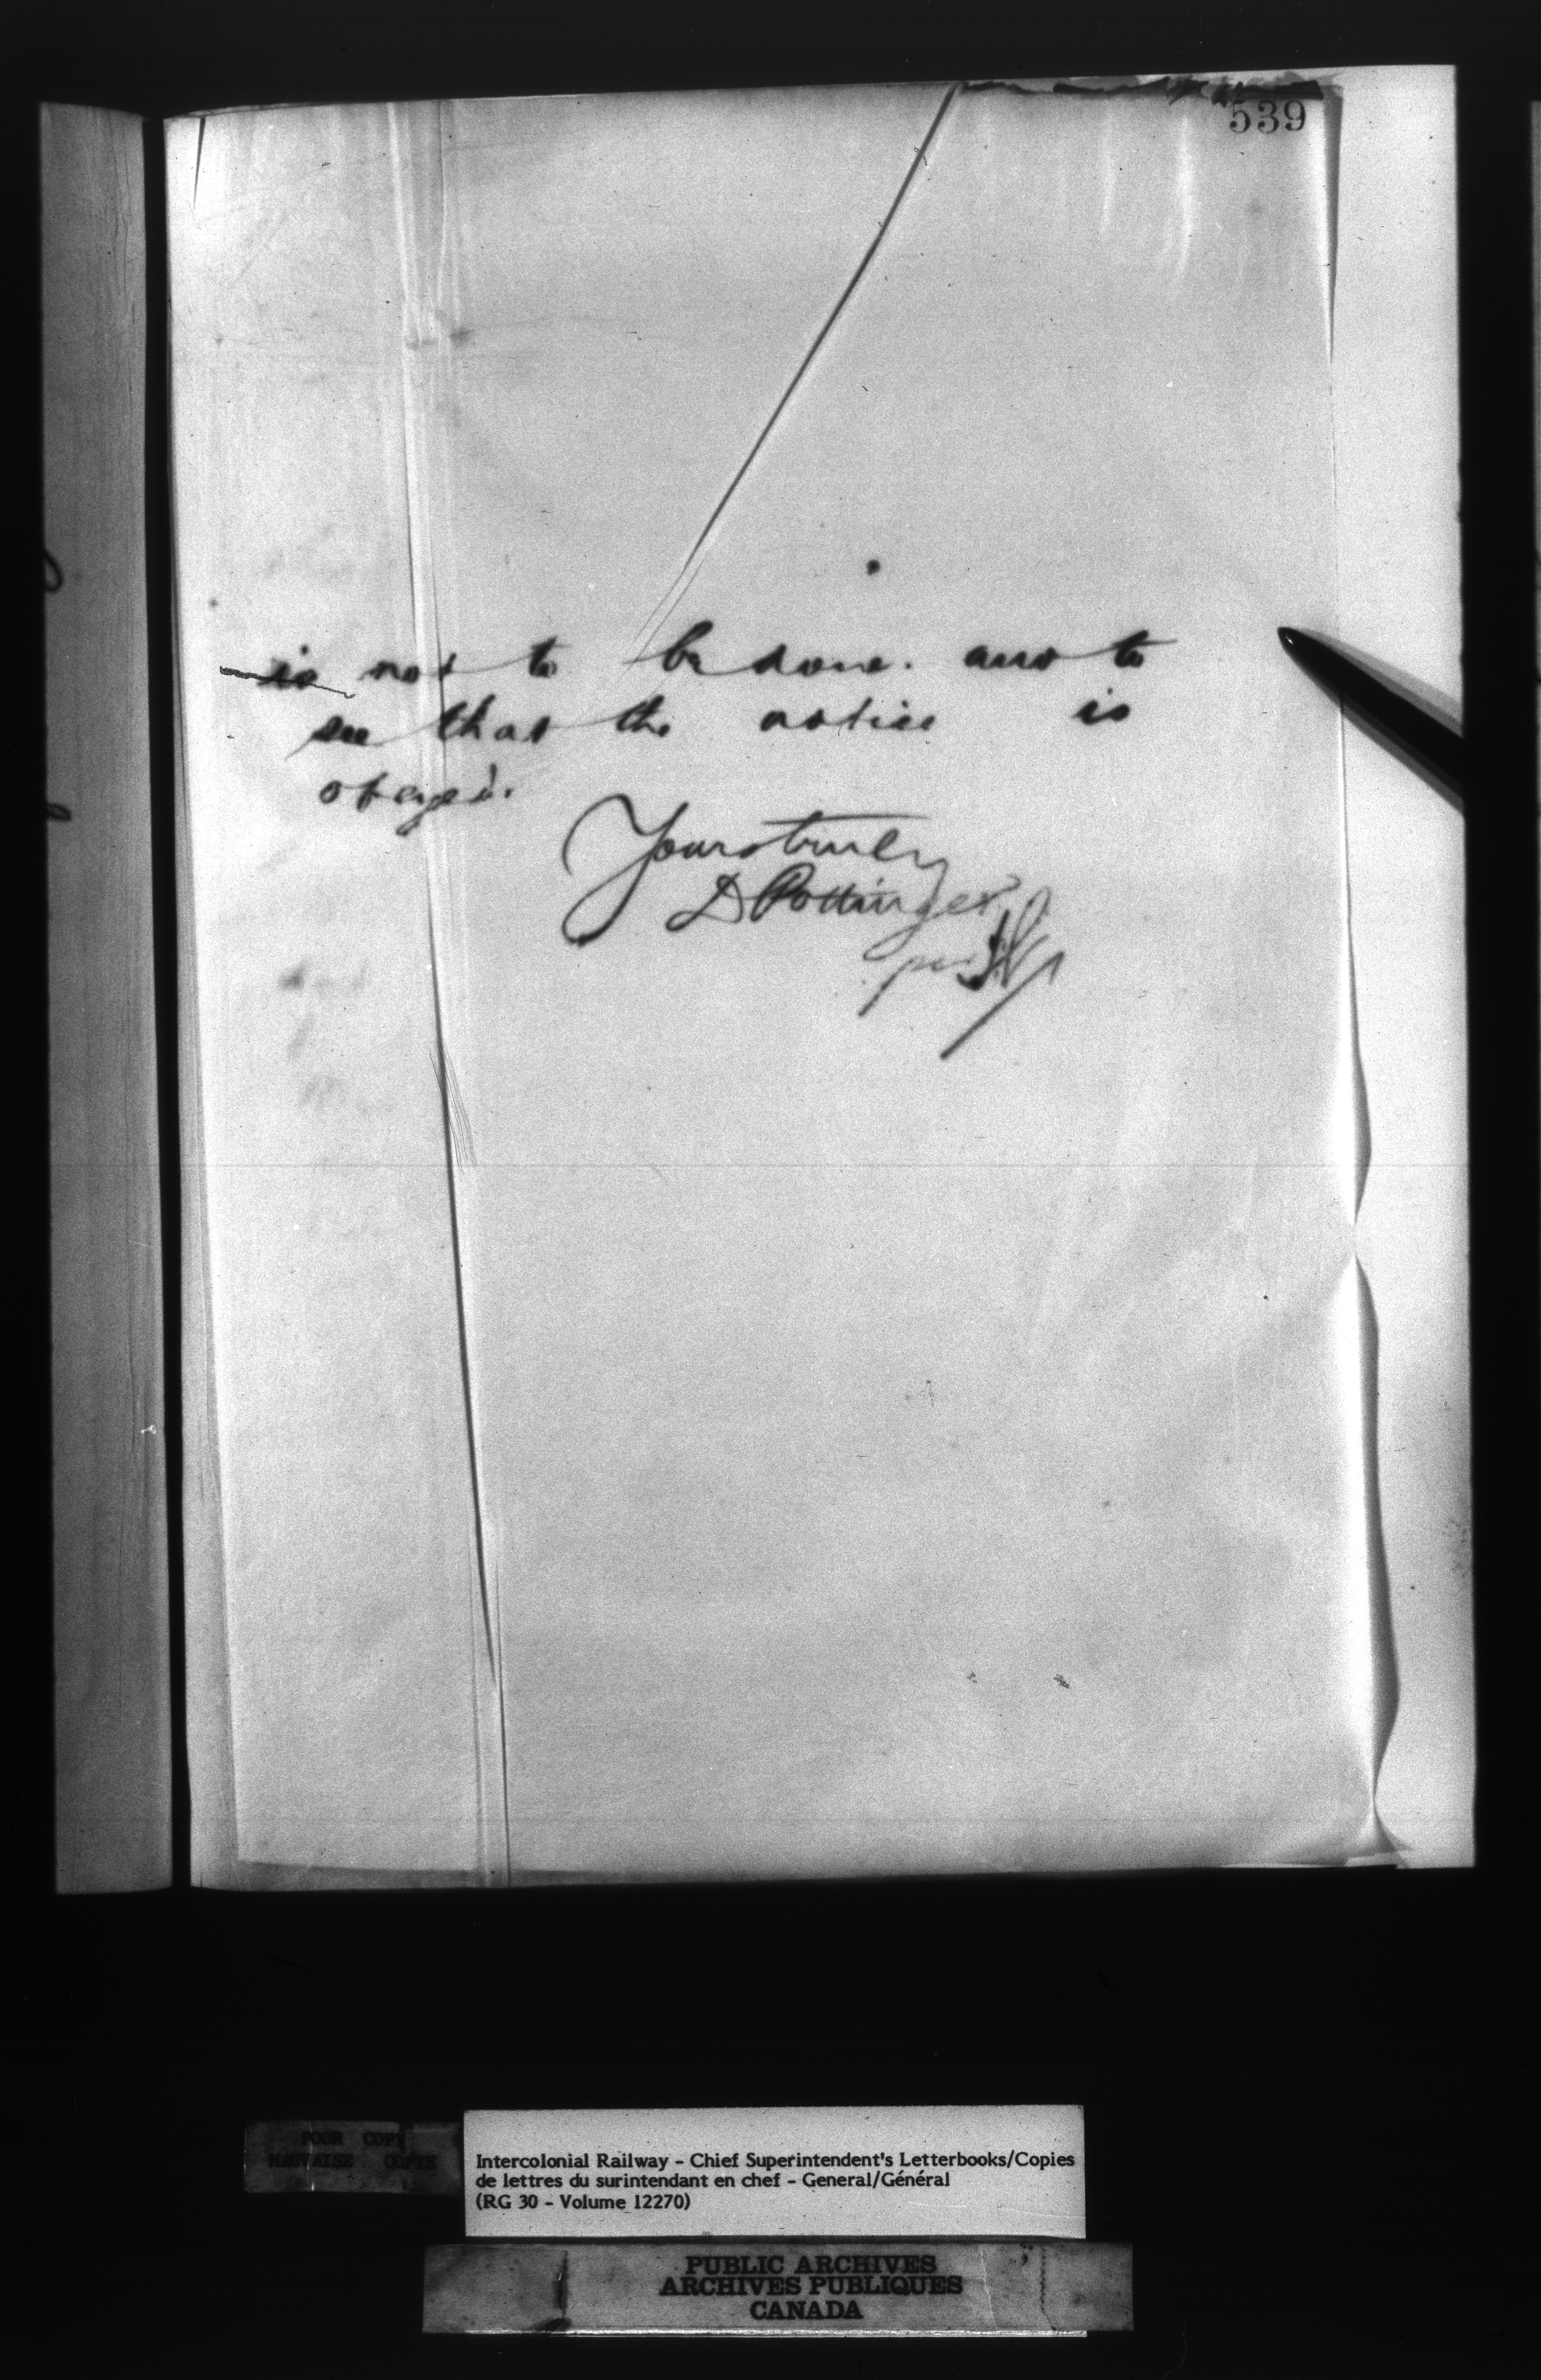 539
is not to be done. and to
see that the notice is
obeyed.
Yours truly
D Pottinger
per
POOR COPY
MAUVAISE COPIE
Intercolonial Railway - Chief Superintendent's Letterbooks/Copies
de lettres du surintendant en chef - General/Général
(RG 30 - Volume 12270)
PUBLIC ARCHIVES
ARCHIVES PUBLIQUES
CANADA